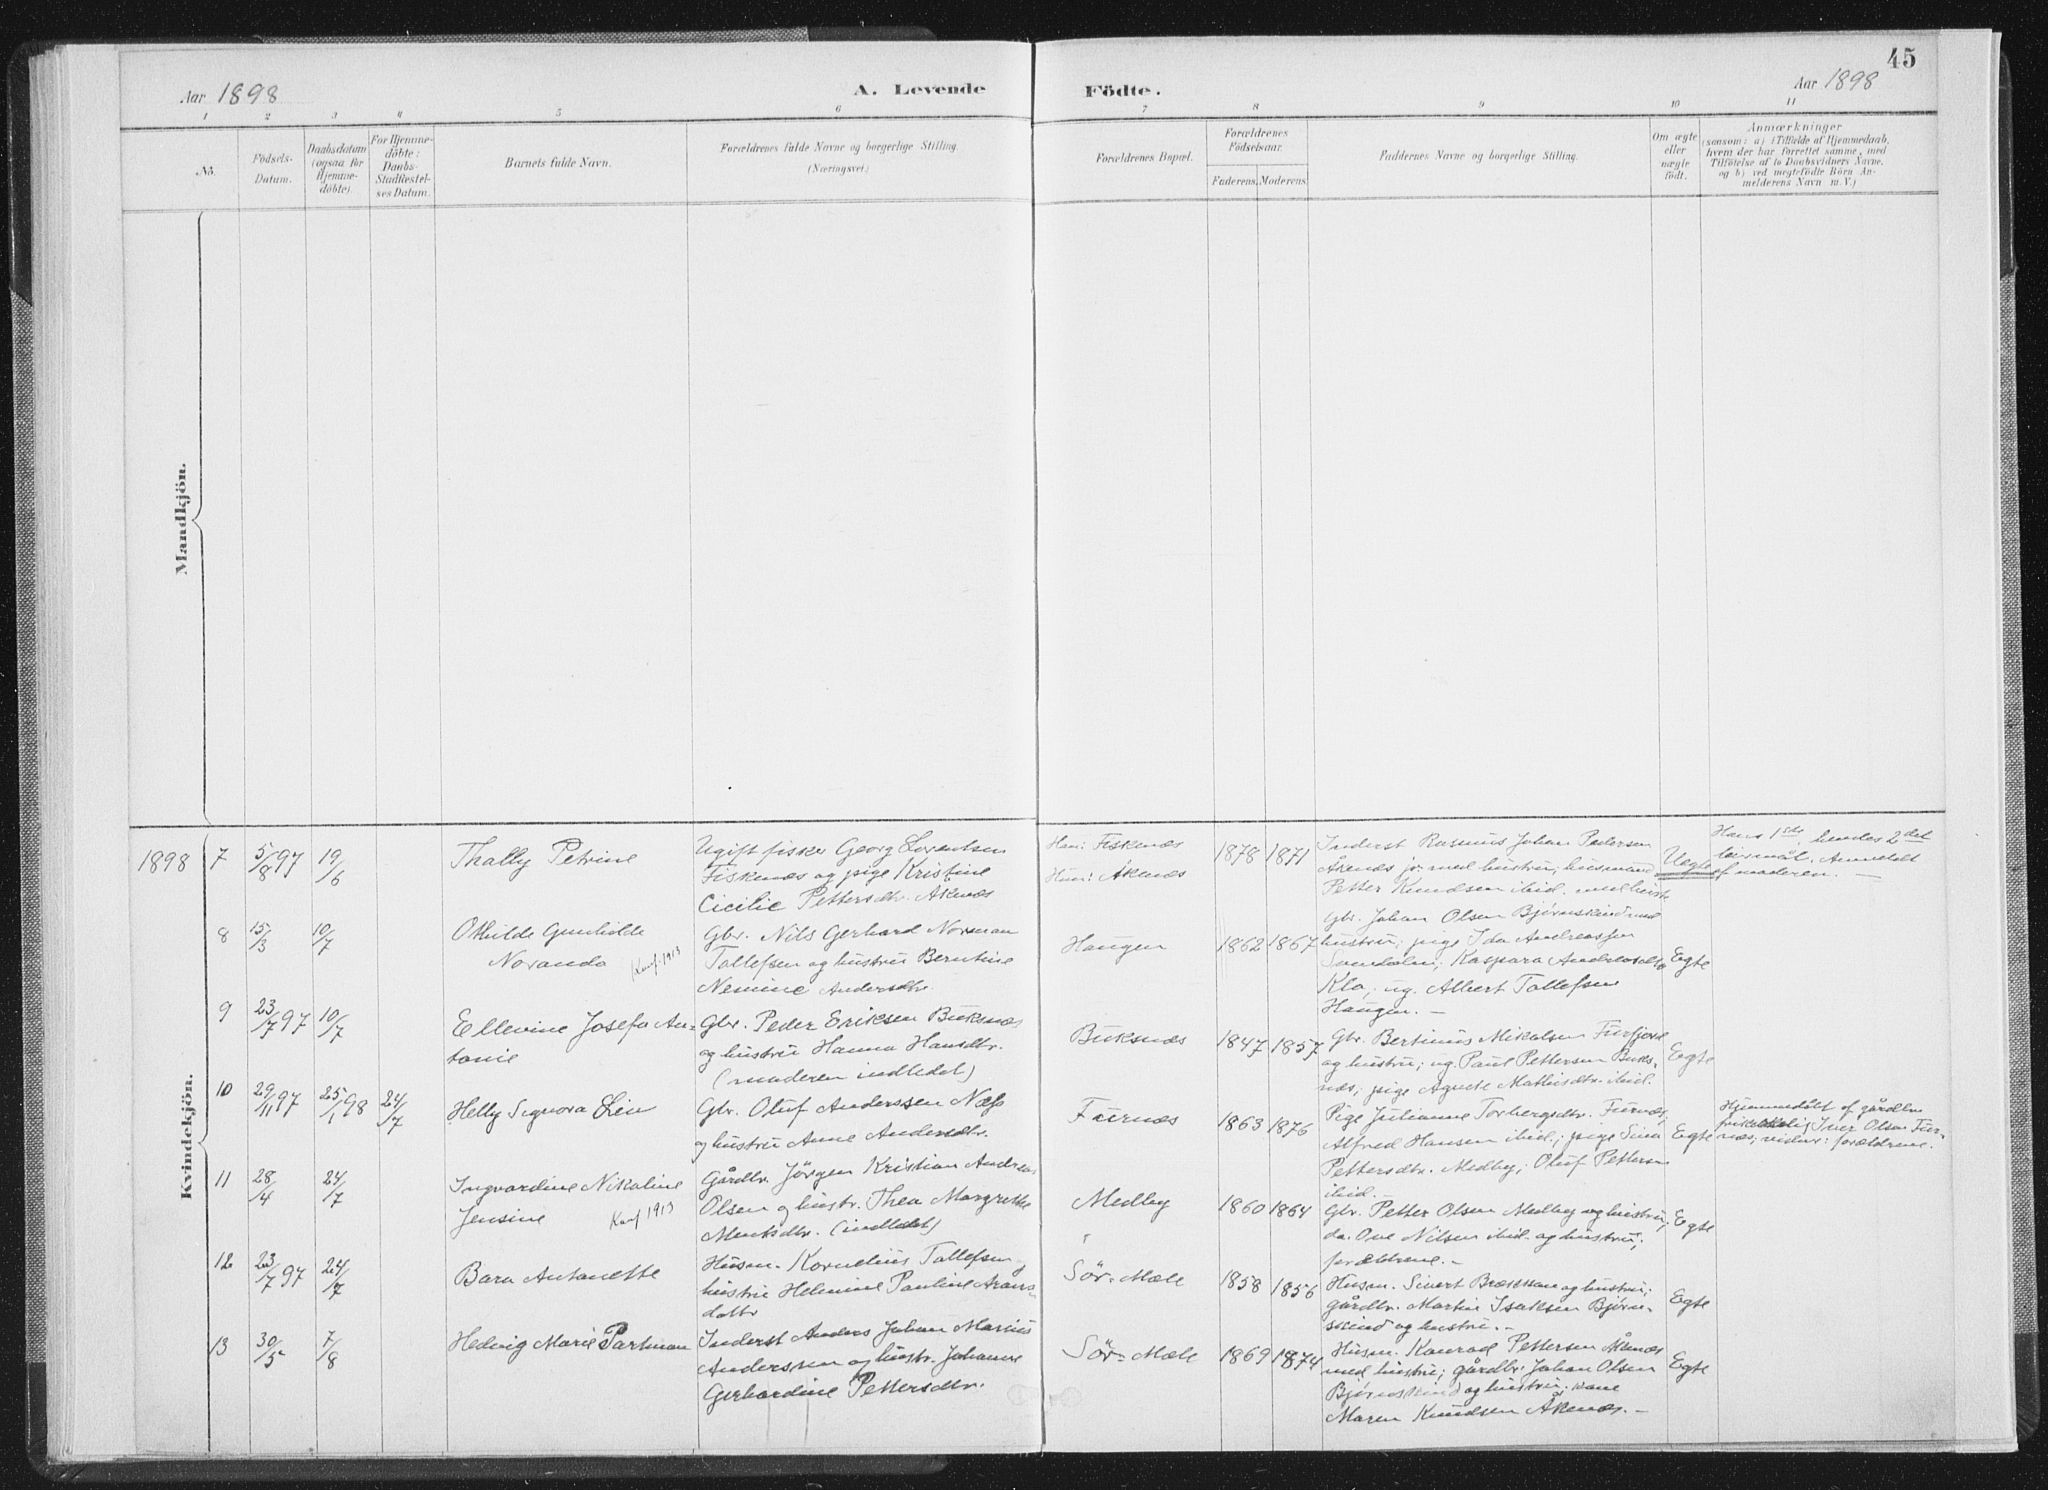 45
Aar 1898
A. Levende Födte.
Aar 1898
1 2 3 4 5 6 7 8 9 10 11
No.
Födsels-
Datum.
Daabsdatum
(ogsaa for
Hjemme-
döbte).
For Hjemme-
döbte:
Daabs-
Stadfæstel-
ses Datum.
Barnets fulde Navn.
Forældrenes fulde Navne og borgerlige Stilling.
(Næringsvei.)
Forældrenes Bopæl.
Forældrenes
Födselsaar.
Faderens. Moderens.
Faddernes Navne og borgerlige Stilling.
Om ægte
eller
uægte
födt.
Anmærkninger
(saasom: a) i Tilfælde af Hjemmedaab,
hvem der har forrettet samme, med
Tilföielse af to Daabsvidners Navne.
og b) ved uegtefödte Börn An-
melderens Navn m. V.)
Mandkjön.
Kvindekjön.
1898 7 5/8 97 19/6
Thally Petrine
Ugift fisker Georg
Fiskenæs og pige Kristine
Cicilie Pettersdtr. Åkenæs
Han: Fiskenæs
Hun: Åkenæs
1878 1871
Inderst Rasmus Johan Pedersen
Åkenæs jr. med hustru; husmand
Petter Knudsen ibid. med hustr.
Uegte
Hans 1ste, hendes 2det
leiermål. Anmeldt
af moderen. —
8 15/3 10/7
Othilde Gunhilde
Noranda Konf. 1913
Gbr. Nils Gerhard Norman
Tollefsen og hustru Berntine
Nesmine Andersdtr.
Haugen
1862 1867
Gbr. Johan Olsen Bjørnskind med
hustru; pige Ida Andreassen
Kaspara Andreasdtr.
Klo; ug. Albert Tollefsen
Haugen. —
Egte
9 23/7 97 10/7
Ellevine Josefa An-
tonie
Gbr. Peder Eriksen Buksnæs
og hustru Hanna Hansdtr.
(moderen indledet)
Buksnæs
1847 1857
Gbr. Bertinus Mikalsen Furfjord
og hustru; ug. Paul Pettersen Buks-
næs; pige Agnete Mathisdtr. ibid.
Egte
10 29/11 97 25/1 98 24/7
Helly Signora Lea
Gbr. Oluf Anderssen Næss
og hustru Anne Andersdtr.
Fürnæs
1863 1876
Pige Julianne Torbergsdtr. Furnæs,
Alfred Hansen ibid.; pige Sina
Pettersdtr. Medby; Oluf Pettersen
ibid. —
Egte
Hjemmedöbt af gårdbr.
Iver Olsen Fur-
næs; vidner: forældrene.
11 28/4 24/7
Ingvardine Nikoline
Jensine Konf 1913
Gårdbr. Jörgen Kristian Andreas
Olsen og hustr. Thea Margrethe
Mentsdtr. (indledet)
Medby
1860 1864
Gbr. Petter Olsen Medby og hustru;
do. Ove Nilsen ibid. og hustru;
forældrene. —
Egte
12 23/7 97 24/7
Bara Antonette
Husm. Kornelius Tollefsen og
hustru Helmine Pauline Arons-
dattr
Sör-Mæle
1858 1856
Husm. Sivert og hustru;
gårdbr. Martin Isaksen Bjørn-
skind og hustru. —
Egte
13 30/5 7/8
Hedvig Marie Partman
Inderst Anders Johan Marius
Anderssen og hustr. Johanne
Gerhardine Pettersdtr.
Sör-Mæle
1869 1874
Husm. Konrad Pettersen Åkenæs
med hustru; gårdbr. Johan Olsen
Bjørnskind og hustru; kone
Maren Knudsen Åkenæs. —
Egte